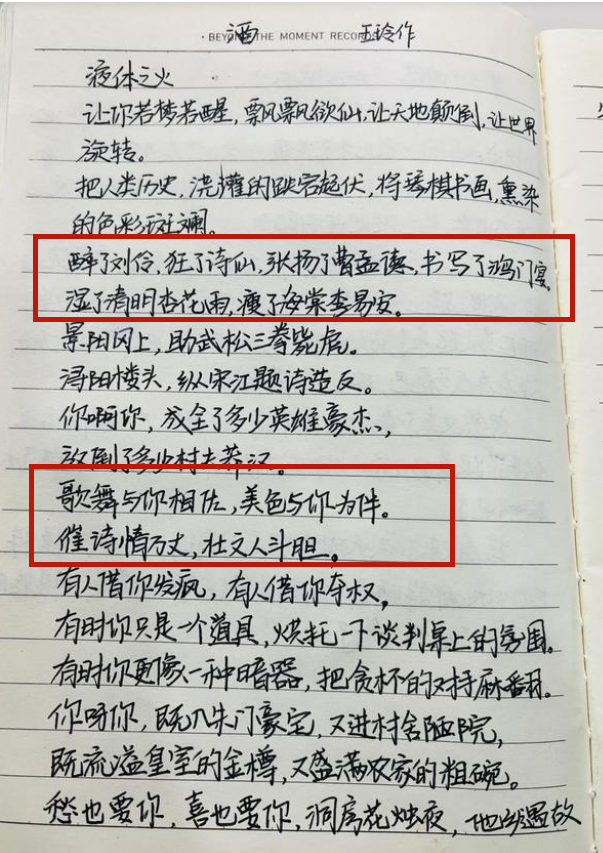 · BEYOND THE MOMENT RECORDS
酒 王玲作
液体之火
让你若梦若醒，飘飘飘欲仙，让天地颠倒，让世界
旋转。
把人类历史，浇灌的跌宕起伏，将琴棋书画，熏染
的色彩斑斓。
醉了刘伶，狂了诗仙，张扬了曹孟德，书写了鸿门宴
湿了清明杏花雨，瘦了海棠李易安。
景阳冈上，助武松三拳毙虎。
浔阳楼头，纵宋江题诗造反。
你啊你，成全了多少英雄豪杰，
放倒了多少村夫莽汉。
歌舞与你相伍，美色与你为伴。
催诗情万丈，壮文人斗胆。
有人借你发疯，有人借你夺权，
有时你只是一个道具，烘托一下谈判桌上的氛围。
有时你更像一种暗器，把贪杯的对手麻翻。
你呀你，既入朱门豪宅，又进村舍陋院，
既流溢皇室的金樽，又盛满农家的粗碗。
愁也要你，喜也要你，洞房花烛夜，他乡遇故